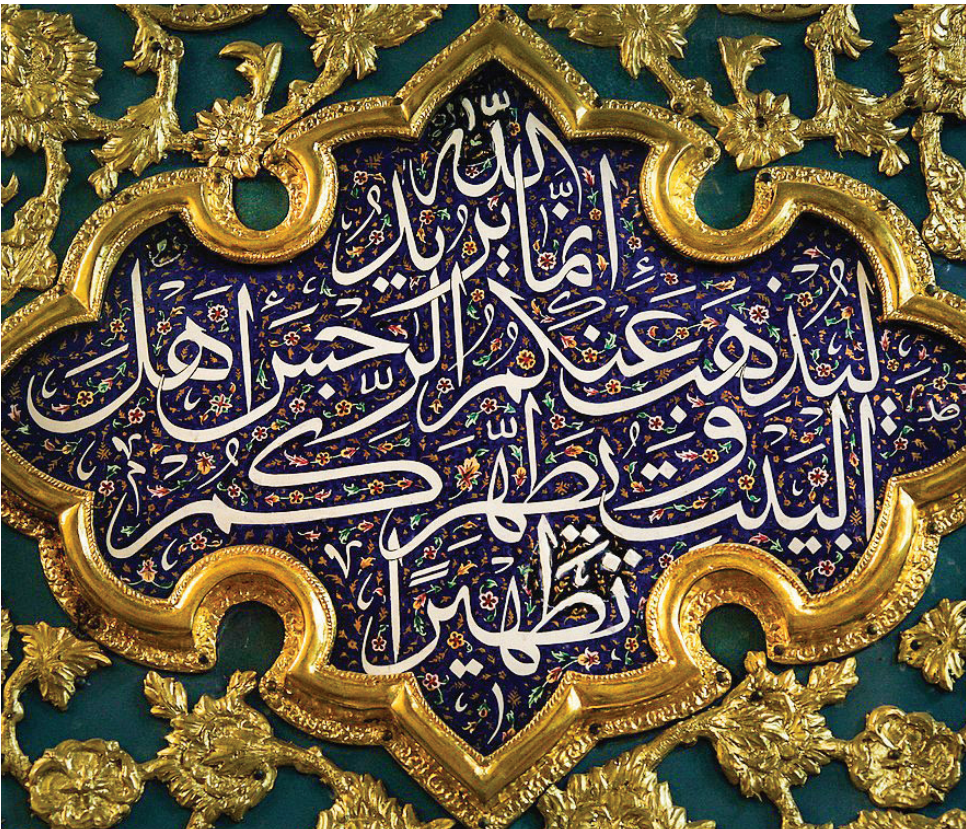 اِنَّما يُريدُ اللّه
لِيُذهِبَ عَنكُمُ الرِّجسَ اَهلَ
البَيتِ وَ يُطَهِّرَكُم
تَطهيرًا